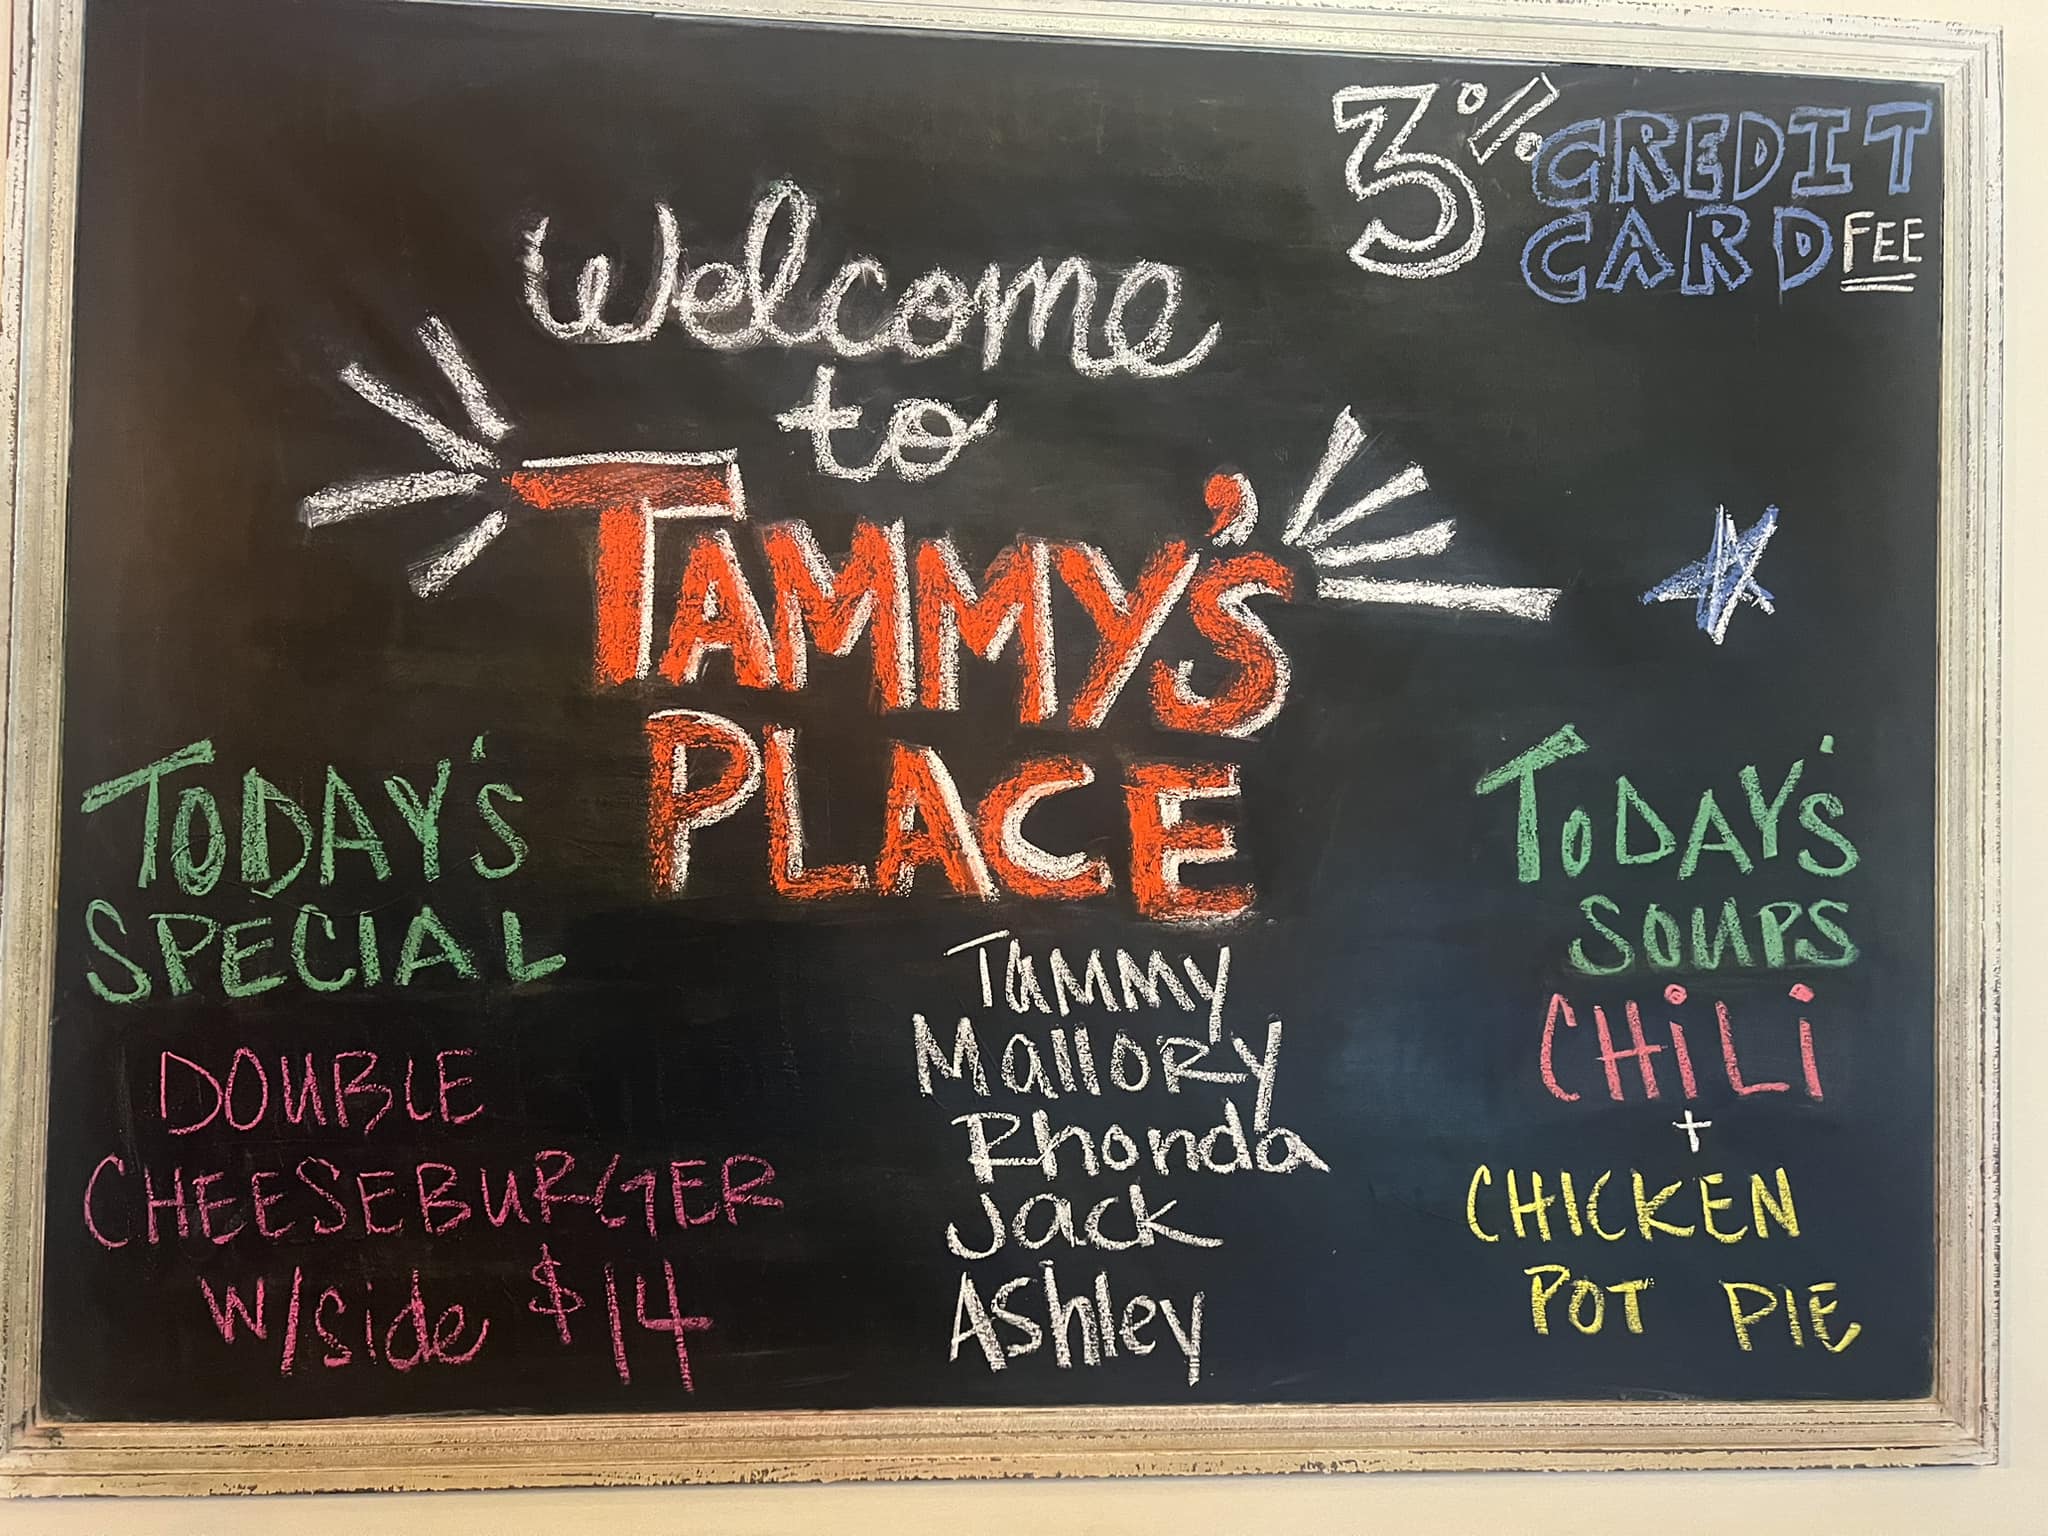 3% CREDIT
CARD FEE
Welcome
to
TAMMY'S
PLACE
TODAY'S
SPECIAL
DOUBLE
CHEESEBURGER
W/side $14
TAMMY
MallORY
Rhonda
Jack
Ashley
TODAY'S
SOUPS
CHiLi
+
CHICKEN
POT PIE